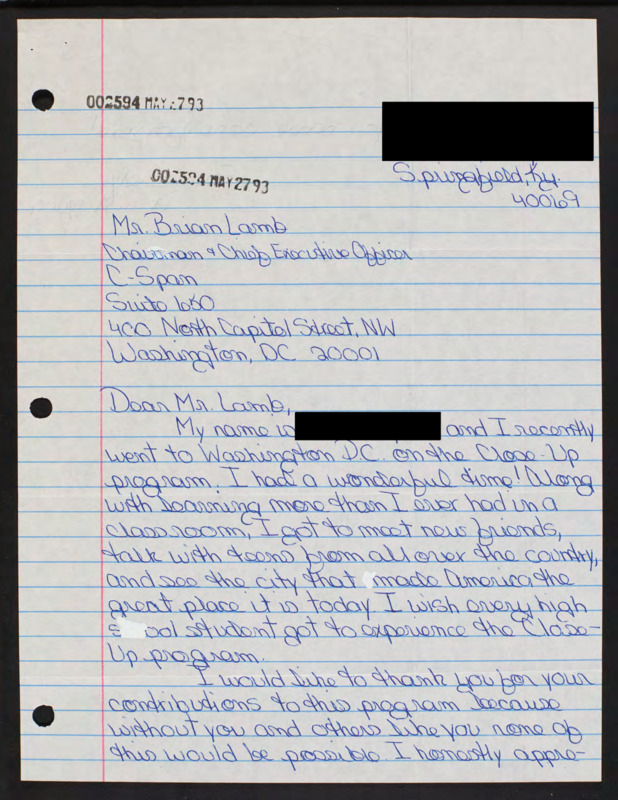 002594 MAY 2793
002594 MAY2793
Springfield, Ky.
40069
Mr. Brian Lamb
Chairman & Chief Executive Officer
C-Span
Suite 650
400 North Capitol Street, NW
Washington, DC 20001
Dear Mr. Lamb,
My name is and I recently
went to Washington D.C. on the Close-Up
program. I had a wonderful time! Along
with learning more than I ever had in a
classroom, I got to meet new friends,
talk with teens from all over the country,
and see the city that made America the
great place it is today. I wish every high
s ool student got to experience the Close-
Up program.
I would like to thank you for your
contributions to this program because
without you and others like you none of
this would be possible. I honestly appre-